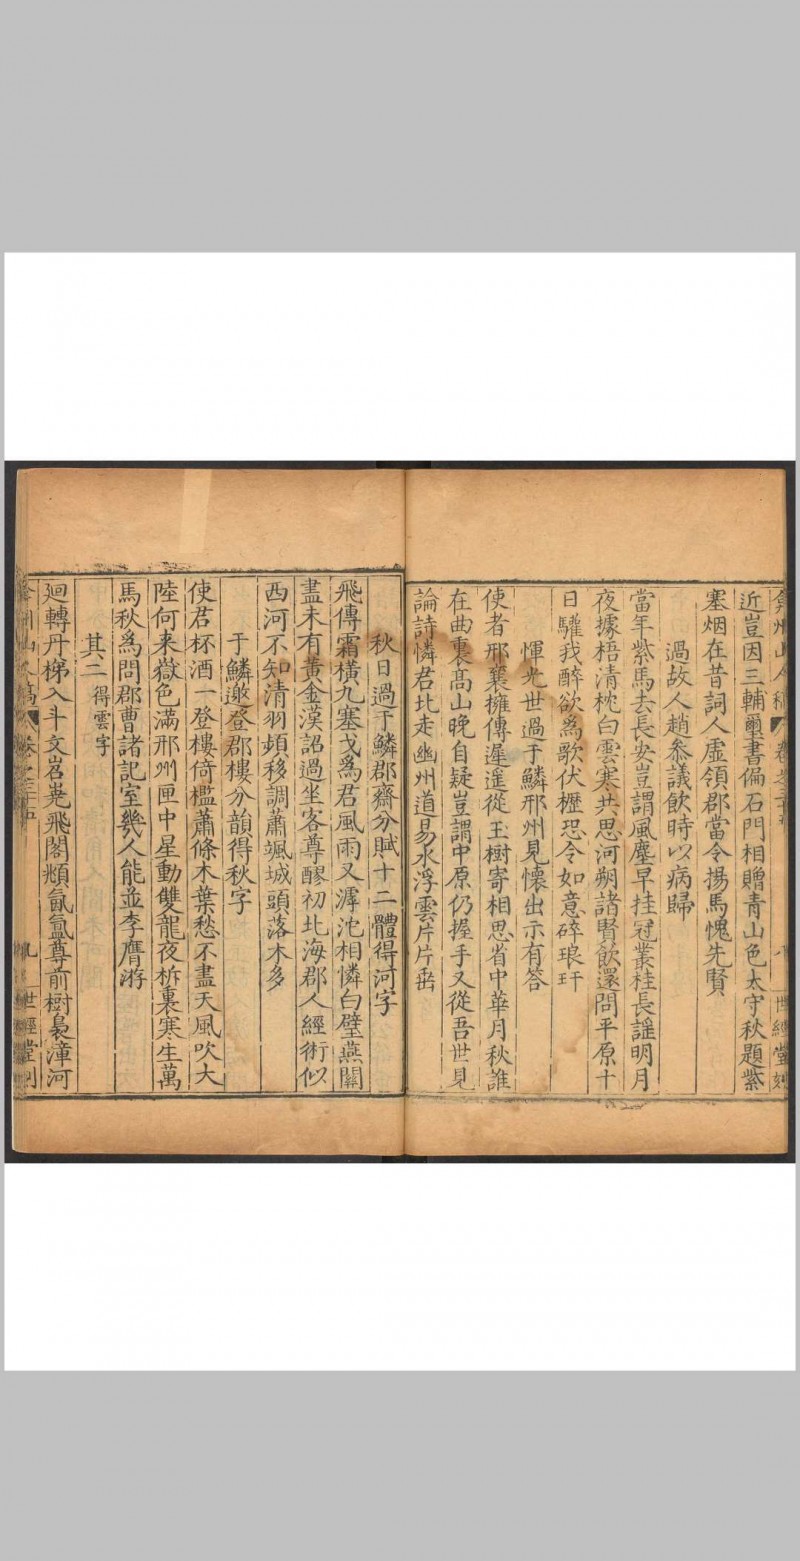 弇州山人稿 卷之三十 八 世經堂刻
近豈因三輔璽書偏石門相贈青山色太守秋題紫
塞烟在昔詞人虛領郡當令揚馬愧先賢
過故人趙叅議飲時以病歸
當年紫馬去長安豈謂風塵早挂冠叢桂長謡明月
夜據梧清枕白雲寒共思河朔諸賢飲還問平原十
日驩我醉欲爲歌伏櫪恐令如意碎琅玕
惲光世過于鱗邢州見懷出示有答
使者邢襄擁傳遲遥從玉樹寄相思省中華月秋誰
在曲裏髙山晚自疑豈謂中原仍握手又從吾世見
論詩憐君北走幽州道易水浮雲片片垂
秋日過于鱗郡齋分賦十二體得河字
飛傳霜橫九塞戈爲君風雨又滹沱相憐白璧燕關
盡未有黃金漢詔過坐客尊醪初北海郡人經術似
西河不知清羽頻移調蕭颯城頭落木多
于鱗邀登郡樓分韻得秋字
使君杯酒一登樓倚檻蕭條木葉愁不盡天風吹大
陸何来嶽色滿邢州匣中星動雙龍夜柝裏寒生萬
馬秋爲問郡曹諸記室幾人能並李膺游
其二 得雲字
廻轉丹梯入斗文岧嶤飛閣頫氤氲尊前樹裊漳河
弇州山人稿 卷之三十 九 世經堂刻